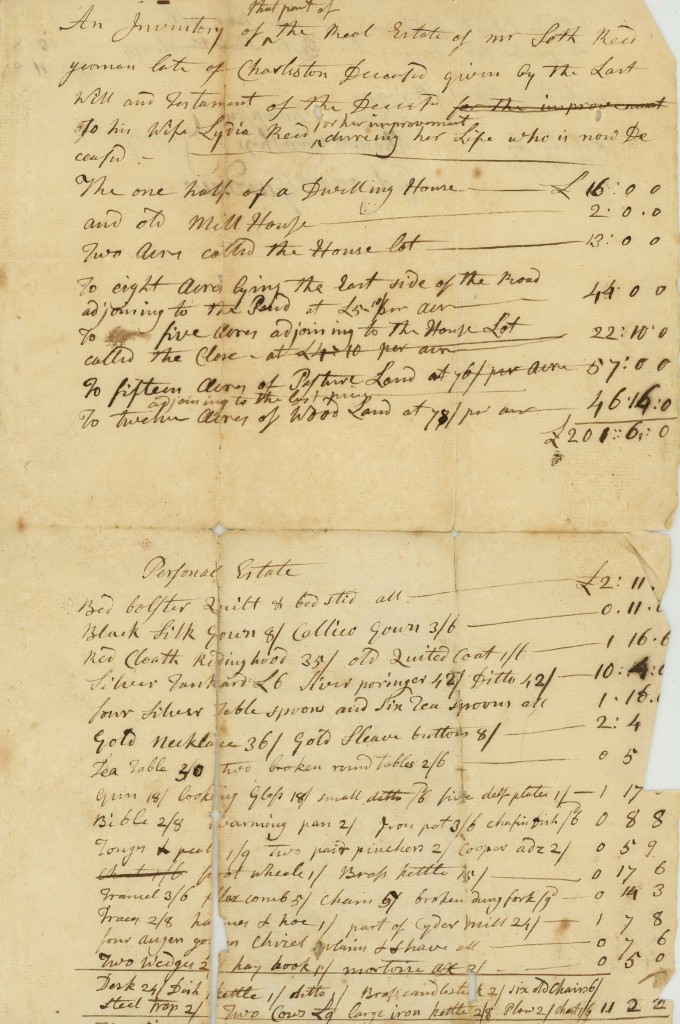 that part of
An Inventory of ^ the Real Estate of mr Seth Reed
yeoman late of Charlston Deceased given by the Last
Will and Testament of the Deceasd for the improvement
To his Wife Lydia Reed ^ for her improvement durring her Life who is now De
ceased
The one half of a Dwelling House £ 16: 0 0
and old Mill House 2: 0. 0
Two Acres called the House lot 13: 0 0
To eight Acres lying the East side of the Road
adjoining to the Pond at £5-10 per acre 44: 0 0
To five Acres adjoining to the House Lot
called the Close at £4=10 per acre 22: 10: 0
To fifteen Acres of Pasture Land at 76/ per Acre 57: 0 0
adjoining to the last
To twelve Acres of Wood Land at 78/ per acre 46: 16: 0
£201: 6: 0
Personal Estate
Bed bolster Quilt & bedstid all £2: 11.
Black Silk Gown 8/ Callico Gown 3/6 0. 11.
Red Cloath Ridinghood 35/ old Quited Coat 1/6 1 16. 6
Silver Tankard £6 Silver poringer 42/ Ditto 42/ 10: 4:
four Silver Table spoons and Six Tea spoons all 1. 16.
Gold Necklace 36/ Gold Sleave buttons 8/ 2: 4
Tea Table 2/ two broken round tables 2/6 0 5
Gun 18/ looking Glass 18/ small ditto /6 five delf plates 1/ 1 17
Bible 2/8 warming pan 2/ Iron pot 3/6 chafin dish /6 0 8 8
Tongs & peal 1/9 two pair pinchers 2/ Cooper adz 2/ 0 5 9
foot wheele 1/ Brass kettle 0 17 6
Tramel 3/6 flax comb 5/ Chain broken dung fork /9 0 14 3
Traces 2/8 hames & hoe 1/ part of Cyder Mill 24/ 1 7 8
four augers Chisel plains & shave all 0 7 6
Two Wedges 2/ hay hook 1/ mortoise ax 2/ 0 5 0
Desk 24/ Dish kettle 1/ ditto Brass candlestick 2/ six old Chairs 6/
Steel trap 2/ Two Cows £9 large iron kettle 2/8 Plow 2/ chest 11 2 2